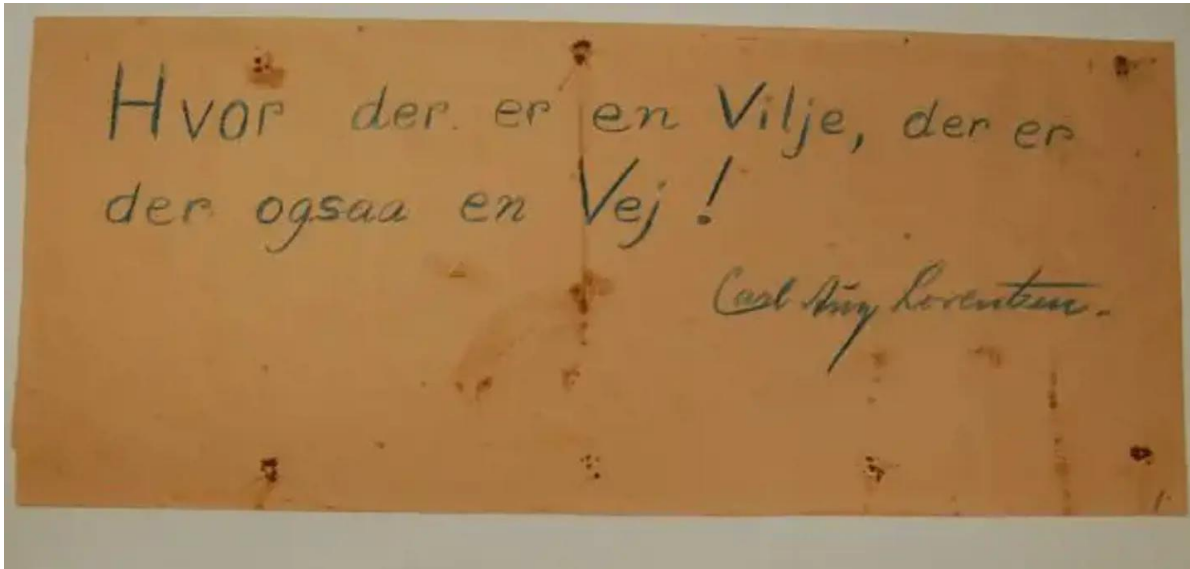 Hvor der er en Vilje, der er
der ogsaa en Vej!
Carl Aug Lorentzen.